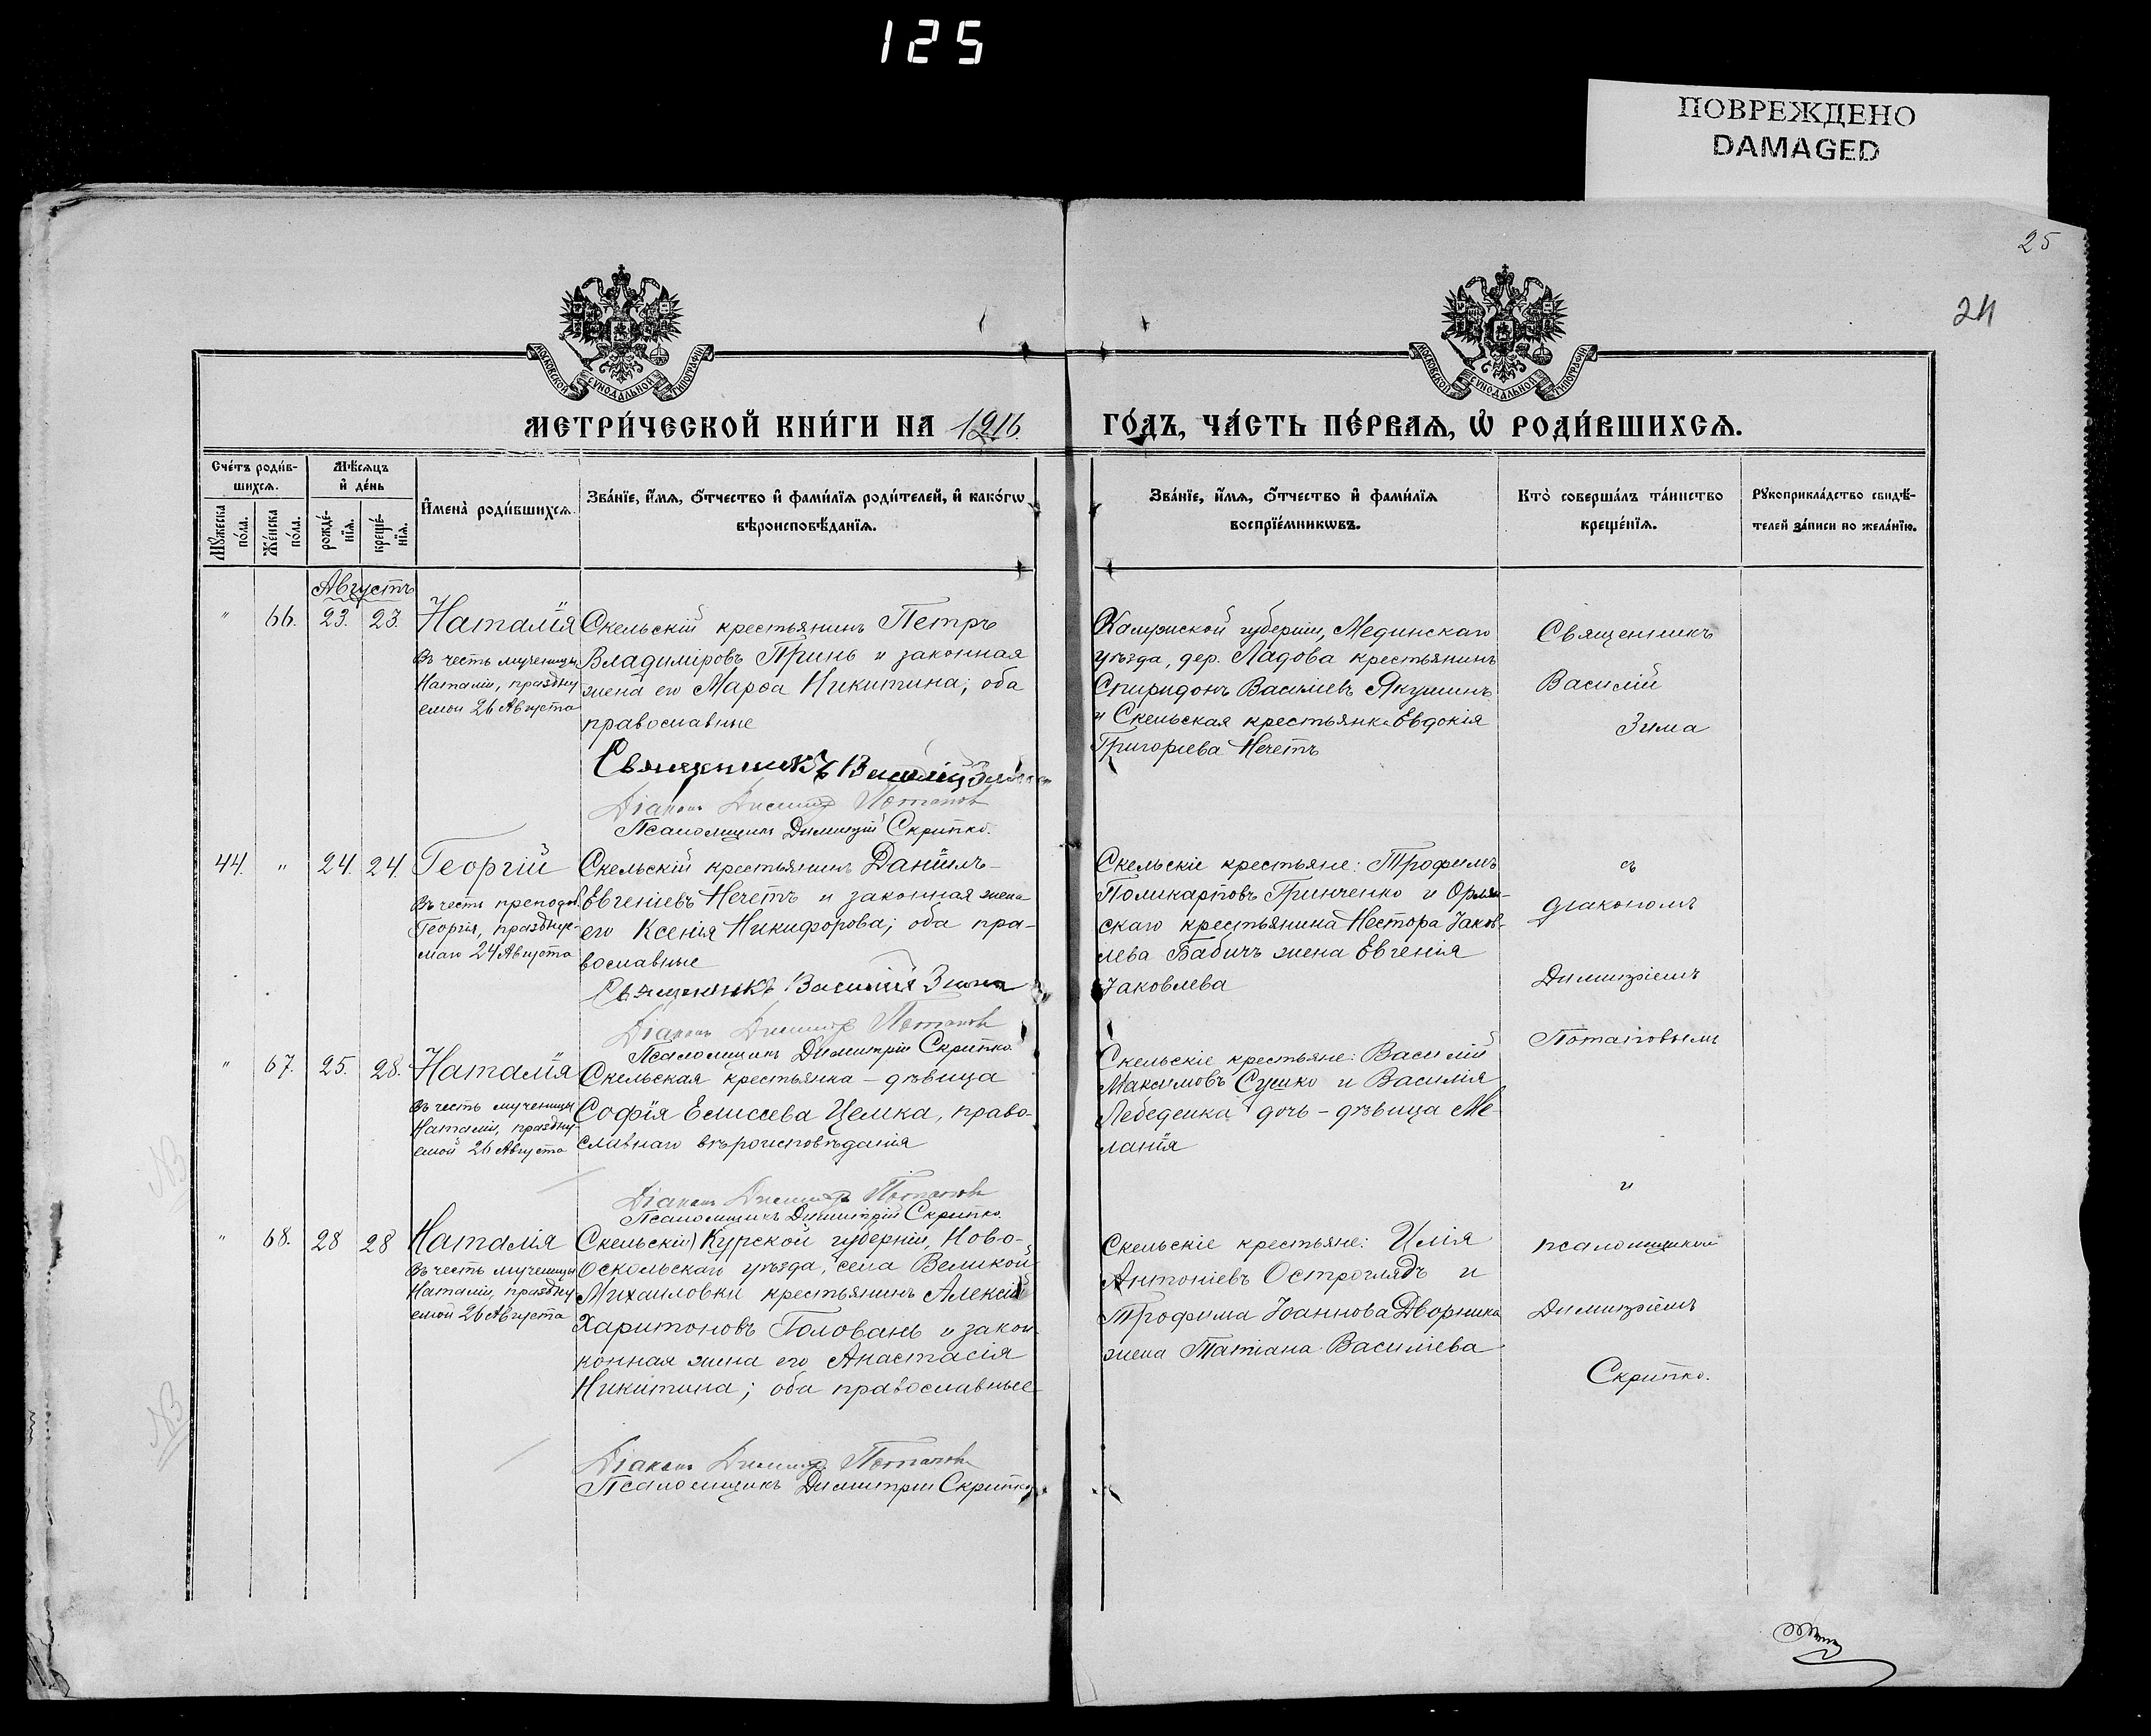 125
ПОВРЕЖДЕНО
DAMAGED
25
24
МОСКОВСКОЙ СУНОДАЛЬНОЙ ТИПОГРАФІИ
МОСКОВСКОЙ СУНОДАЛЬНОЙ ТИПОГРАФІИ
МЕТРИ́ЧЕСКОЙ КНИ́ГИ НА 1916 ГО́ДЪ, ЧА́СТЬ ПЕ́РВАѦ, Ѡ РОДИ́ВШИХСѦ.
Сче́тъ роди́в-
шихсѧ.
Мꙋжеска по́ла.
Же́нска по́ла.
Мѣ́сѧцъ
и де́нь
рожде́-
нїѧ.
креще́-
нїѧ.
Имена̀ роди́вшихсѧ
Зва́нїе, и́мѧ, ѻ́тчество и фами́лїѧ роди́телей, и како́гѡ
вѣроисповѣ́данїѧ.
Зва́нїе, и́мѧ, ѻ́тчество и фами́лїѧ
воспрїе́мникѡвъ.
Кто̀ соверша́лъ та́инство
креще́нїѧ.
Рꙋкоприкла́дство свидѣ́-
телей за́писи по жела́нїю.
Августъ
" 66. 23. 23. Наталія
Въ честь мученицы
Наталіи, праздну
емой 26 Августа
Скельскій крестьянинъ Петръ
Владиміровъ Принь и законная
жена его Марѳа Никитина; оба
православные
Священникъ Василій Зима
Діаконъ Димитрій Потапов
Псаломщикъ Димитрій Скрипко.
Калужской губерніи, Мединскаго
уѣзда, дер. Ладова крестьянинъ
Спиридонъ Василіевъ Якушинъ
и Скельская крестьянка Евдокія
Григоріева Нечетъ
Священникъ
Василій
Зима
44. " 24. 24. Георгій
Въ честь преподоб.
Георгія, празднуе-
маго 24 Августа
Скельскій крестьянинъ Даніилъ
Евгеніевъ Нечетъ и законная жена
его Ксенія Никифорова; оба пра-
вославные
Священникъ Василій Зима
Діаконъ Димитрій Потапов
Псаломщикъ Димитрій Скрипко
Скельскіе крестьяне: Трофимъ
Поликарповъ Гринченко и
скаго крестьянина Нестора Іаков-
лева Бабичъ жена Евгенія
Іаковлева
съ
діакономъ
Димитріемъ
Потаповымъ
" 67. 25. 28. Наталія
Въ честь мученицы
Наталіи, праздну-
емой 26 Августа
Скельская крестьянка - дѣвица
Софія Елисеева Целка, право-
славнаго вѣроисповѣданія
Діаконъ Димитрій Потапов
Псаломщикъ Димитрій Скрипко.
Скельскіе крестьяне: Василій
Максимовъ Сушко и Василія
Лебеденка дочь - дѣвица Ме-
ланія
и
NB
" 68. 28 28 Наталія
Въ честь мученицы
Наталіи, праздну-
емой 26 Августа
Скельскій) Курской губерніи, Ново-
оскольскаго уѣзда, села Великой
Михайловки крестьянинъ Алексій
Харитоновъ Головань и закон
конная жена его Анастасія
Никитина; оба православные
Діаконъ Димитрій Потапов
Псаломщикъ Димитрій Скрипко
Скельскіе крестьяне: Илія
Антоніевъ Остроглядъ и
Трофима Іоаннова Дворника
жена Татіана Василіева
псаломщикомъ
Димитріемъ
Скрипко.
NB